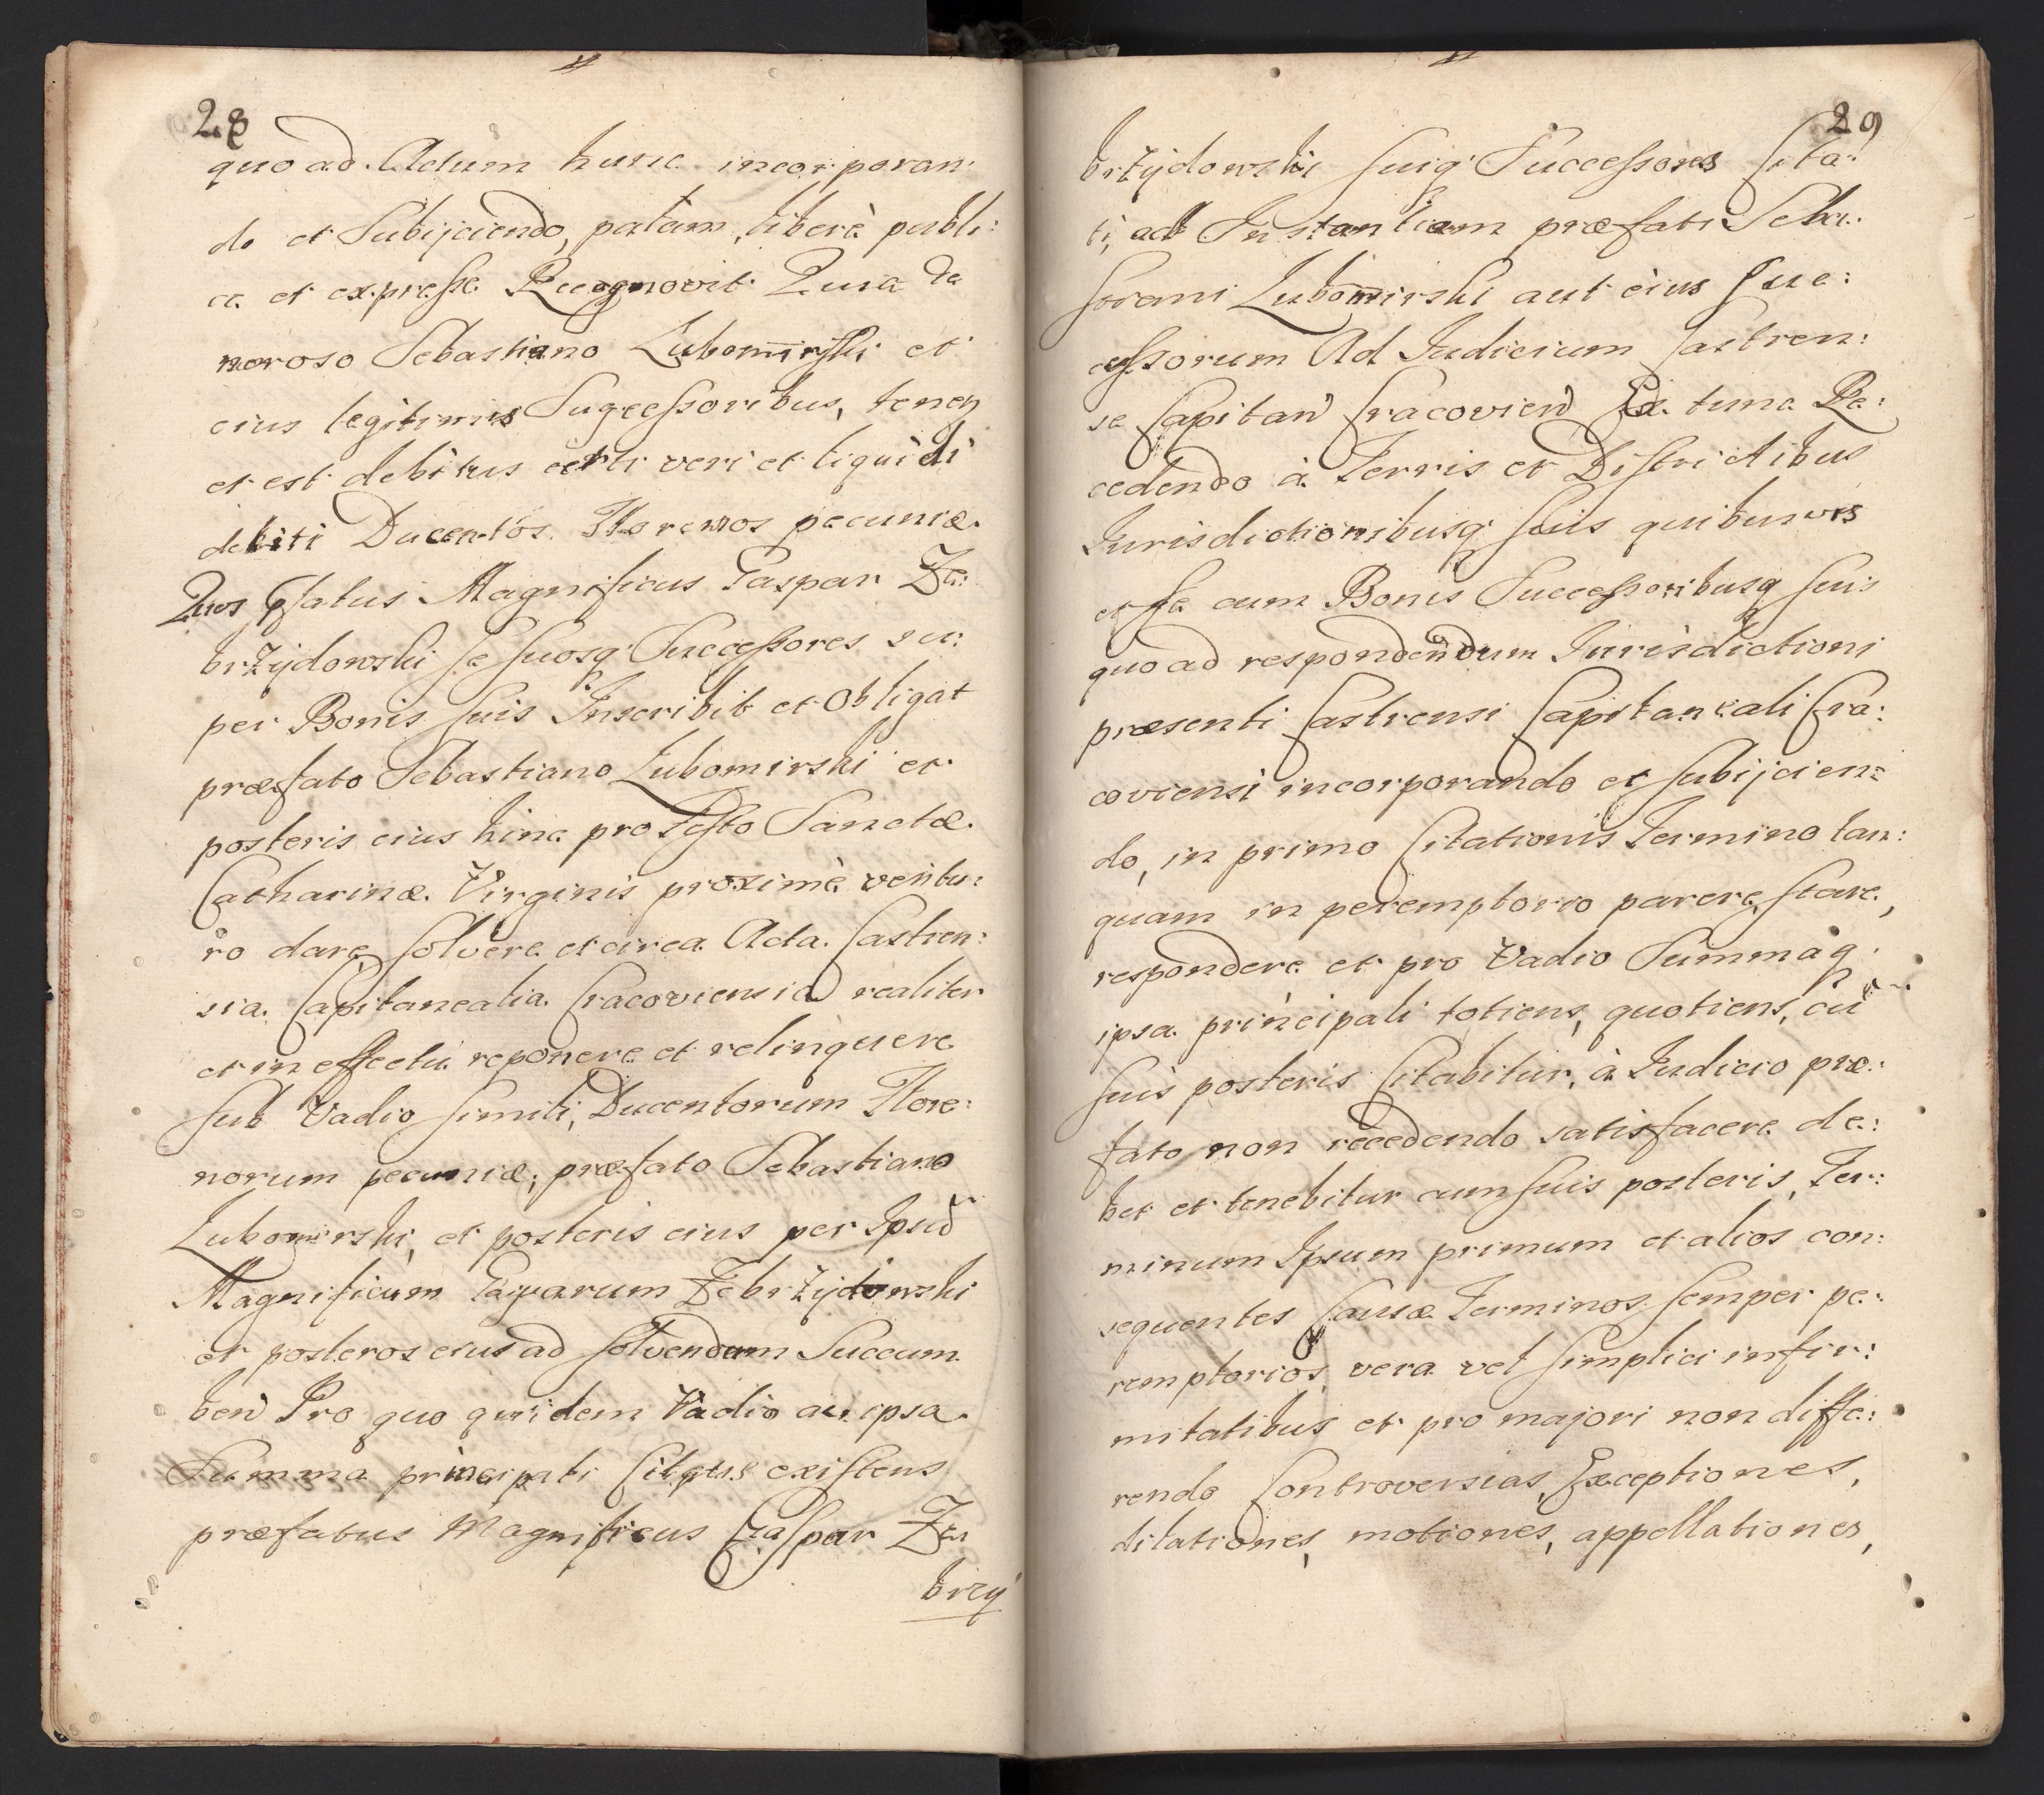 28
quo ad Actum hunc incorporan:
do et Subijciendo, palàm, liberè publi:
ce et expresse Recognovit Quia Ge
neroso Sebastiano Lubomirski et
eius legitimis Sugcessoribus, tenet
et est debitus certi veri et liquidi
debiti Ducentos Florenos pecuniæ.
Quos pfatus Magnificus Gaspar Ze:
brzÿdowski se suosq Successores su:
per Bonis suis Inscribit et Obligat
præfato Sebastiano Lubomirski et
posteris eius hinc pro Festo Sanctæ
Catharinæ Virginis proximè ventu:
ro dare, solvere et circa Acta Castren:
sia Capitanealia Cracoviensia realiter
et in effectu reponere et relinquere
sub Vadio simili, Ducentorum Flore:
norum pecuniæ; præfato Sebastiano
Lubomirski, et posteris eius per Ipsũ
Magnificum Gasparum Zebrzÿdowski
et posteros eius ad solvendum Succum
ben Pro quo quidem Vadio ac ipsa
Summa principali Citatus existens
præfatus Magnificus Caspar Ze
brzÿ
29
brzÿdowski suiq Successores Cita:
ti, ad Instantiam præfati Seba:
stiani Lubomirski aut eius Suc:
cessorum Ad Iudicium Castren:
se Capitan Cracovien Ex tunc Re:
cedendo à Terris et Districtibus
Iurisdictionibusq suis quibusvis
et se cum Bonis Successoribusq suis
quo ad respondendum Iurisdictioni
præsenti Castrensi Capitaneali Cra:
coviensi incorporando et subijcien:
do, in primo Citationis Termino tan:
quam in peremptorio parere, stare,
respondere et pro Vadio Summaq
ipsa principali totiens, quotiens, cũ
suis posteris Citabitur, à Iudicio præ:
fato non recedendo satisfacere de:
bet et tenebitur cum suis posteris, Ter:
minum Ipsum primum et alios con:
sequentes Causæ Terminos semper pe:
remptorios, vera vel simplici infir:
mitatibus et pro majori non diffe:
rendo Controversias, Exceptiones,
dilationes, motiones, appellationes,